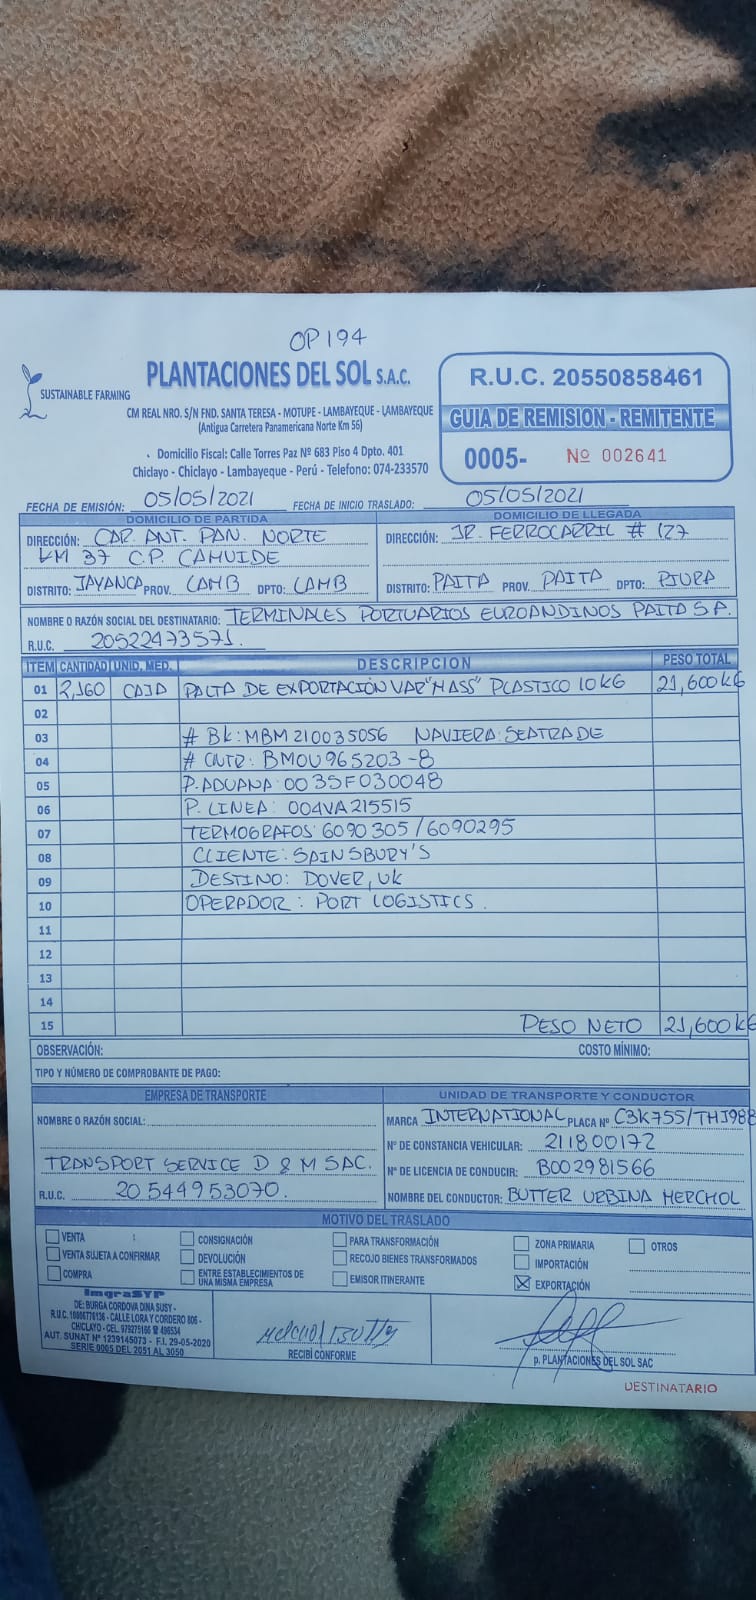 OP 194
PLANTACIONES DEL SOL S.A.C.
SUSTAINABLE FARMING
CM REAL NRO. S/N FND. SANTA TERESA - MOTUPE - LAMBAYEQUE - LAMBAYEQUE
(Antigua Carretera Panamericana Norte Km 56)
Domicilio Fiscal: Calle Torres Paz Nº 683 Piso 4 Dpto. 401
Chiclayo - Chiclayo - Lambayeque - Perú - Telefono: 074-233570
R.U.C. 20550858461
GUIA DE REMISION - REMITENTE
0005- Nº 002641
FECHA DE EMISIÓN: 05/05/2021 FECHA DE INICIO TRASLADO: 05/05/2021
DOMICILIO DE PARTIDA
DIRECCIÓN: CAR. ANT. PAN. NORTE
KM 37 C.P. CAHUIDE
DISTRITO: JAYANCA PROV. LAMB DPTO: LAMB
DOMICILIO DE LLEGADA
DIRECCIÓN: JR. FERROCARRIL # 127
DISTRITO: PAITA PROV. PAITA DPTO: PIURA
NOMBRE O RAZÓN SOCIAL DEL DESTINATARIO: TERMINALES PORTUARIOS EUROANDINOS PAITA S.A.
R.U.C. 20522473571.
ITEM CANTIDAD UNID. MED. DESCRIPCION PESO TOTAL
01 2,160 CAJA PALTA DE EXPORTACIÓN VAR "HASS" PLASTICO 10 KG 21,600 KG
02
03 # BK: MBM210035056 NAVIERA: SEATRADE
04 # CNTR: BMOU 965203-8
05 P. ADUANA: 0035F030048
06 P. LINEA: 004VA215515
07 TERMOGRAFOS: 6090305 / 6090295
08 CLIENTE: SAINSBURY'S
09 DESTINO: DOVER, UK
10 OPERADOR: PORT LOGISTICS.
11
12
13
14
15 PESO NETO 21,600 KG
OBSERVACIÓN: COSTO MÍNIMO:
TIPO Y NÚMERO DE COMPROBANTE DE PAGO:
EMPRESA DE TRANSPORTE
NOMBRE O RAZÓN SOCIAL:
TRANSPORT SERVICE D & M SAC.
R.U.C. 20544953070.
UNIDAD DE TRANSPORTE Y CONDUCTOR
MARCA INTERNATIONAL PLACA Nº C3K755/THJ988
Nº DE CONSTANCIA VEHICULAR: 211800172
Nº DE LICENCIA DE CONDUCIR: B002981566
NOMBRE DEL CONDUCTOR: BUTTER URBINA MERCHOL
MOTIVO DEL TRASLADO
VENTA CONSIGNACIÓN PARA TRANSFORMACIÓN ZONA PRIMARIA OTROS
VENTA SUJETA A CONFIRMAR DEVOLUCIÓN RECOJO BIENES TRANSFORMADOS IMPORTACIÓN
COMPRA ENTRE ESTABLECIMIENTOS DE UNA MISMA EMPRESA EMISOR ITINERANTE EXPORTACIÓN
ImgraSYP
DE: BURGA CORDOVA DINA SUSY -
CALLE LORA Y CORDERO 806 -
AUT. SUNAT Nº 1239145073 - F.I. 29-05-2020
SERIE 0005 DEL 2051 AL 3050
RECIBÍ CONFORME
p. PLANTACIONES DEL SOL SAC
DESTINATARIO